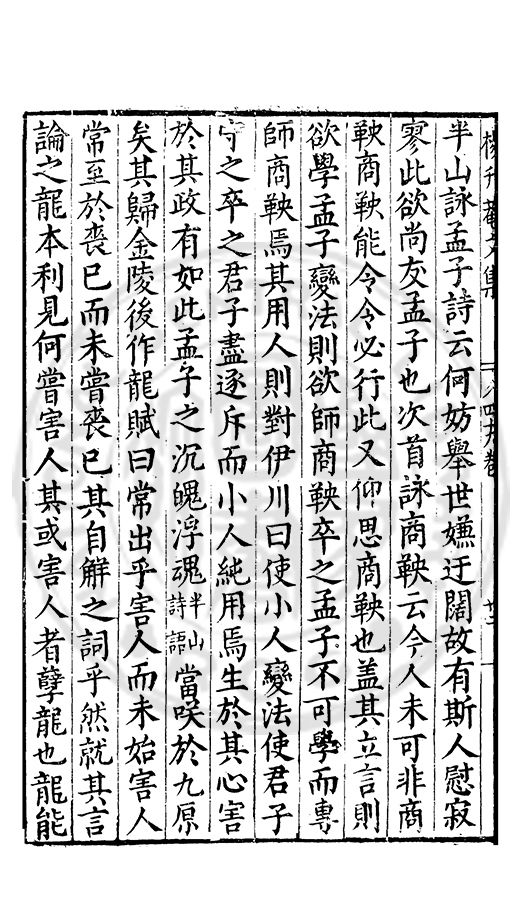 楊升菴文集
半山詠孟子詩云何妨舉世嫌迂闊故有斯人慰寂
寥此欲尚友孟子也次首詠商鞅云今人未可非商
鞅商鞅能令令必行此又仰思商鞅也盖其立言則
欲學孟子變法則欲師商鞅卒之孟子不可學而專
師商鞅焉其用人則對伊川曰使小人變法使君子
守之卒之君子盡逐斥而小人純用焉生於其心害
於其政有如此孟子之沉魄浮魂半山詩語當咲於九原
矣其歸金陵後作龍賦曰常出乎害人而未始害人
常至於喪已而未嘗喪已其自解之詞乎然就其言
論之龍本利見何嘗害人其或害人者孽龍也龍能